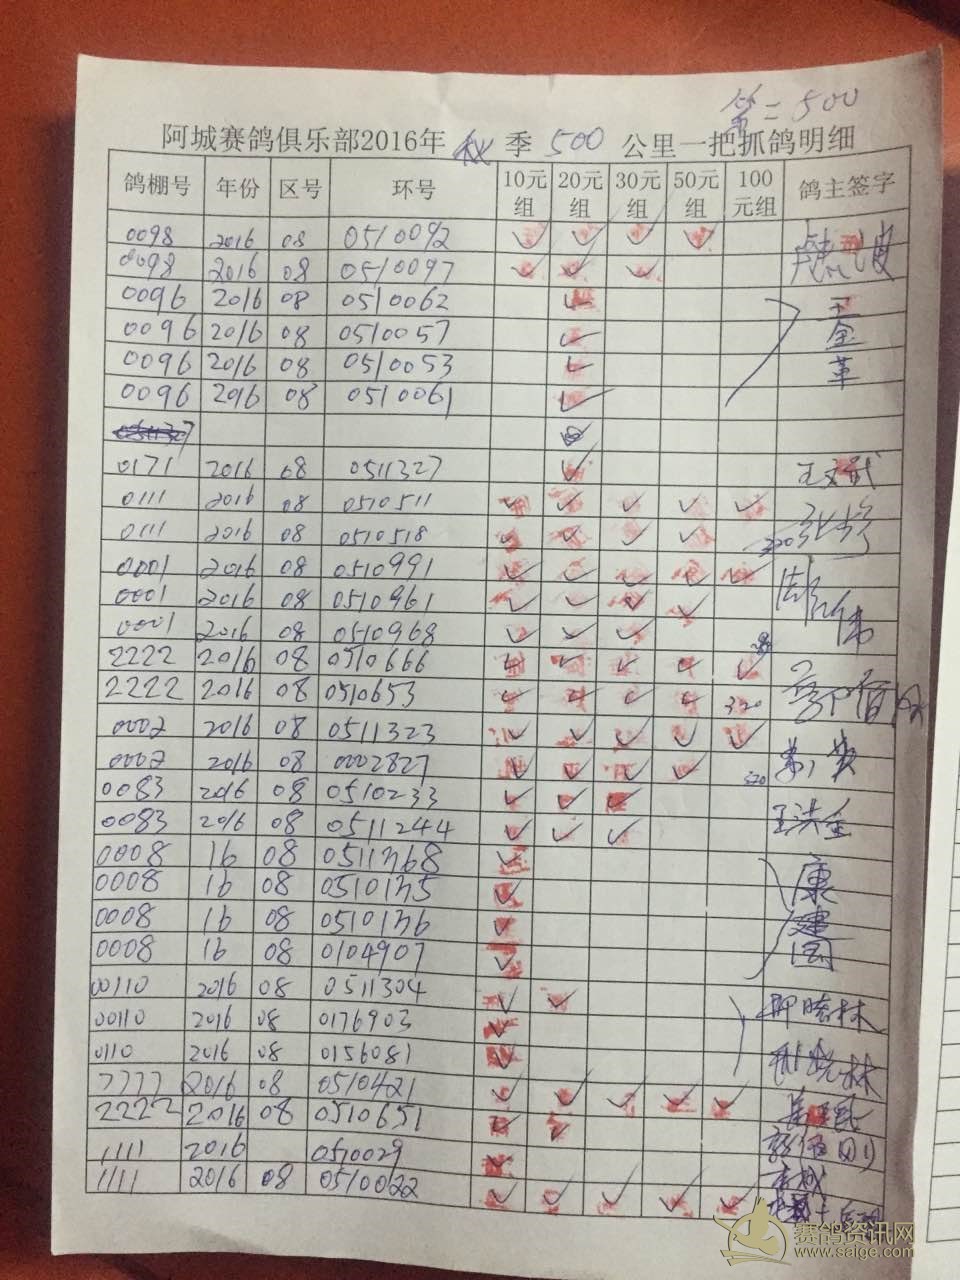 第二500
阿城赛鸽俱乐部2016年秋季500公里一把抓鸽明细
鸽棚号 年份 区号 环号 10元组 20元组 30元组 50元组 100元组 鸽主签字
0098 2016 08 0510092 ✓ ✓ ✓ ✓
0098 2016 08 0510097 ✓ ✓ ✓
0096 2016 08 0510062 ✓ 王
0096 2016 08 0510057 ✓ 金
0096 2016 08 0510053 ✓ 革
0096 2016 08 0510061 ✓
0171 2016 08 0511327 ✓ 王文武
0111 2016 08 0510511 ✓ ✓ ✓ ✓ ✓
0111 2016 08 0510518 ✓ ✓ ✓ ✓ 320
0001 2016 08 0510991 ✓ ✓ ✓ ✓ ✓
0001 2016 08 0510961 ✓ ✓ ✓ ✓
0001 2016 08 0510968 ✓ ✓ ✓
2222 2016 08 0510666 ✓ ✓ ✓ ✓ ✓
2222 2016 08 0510653 ✓ ✓ ✓ ✓ 320
0002 2016 08 0511323 ✓ ✓ ✓ ✓ ✓
0002 2016 08 0002827 ✓ ✓ ✓ ✓ 320
0083 2016 08 0510233 ✓ ✓ ✓
0083 2016 08 0511244 ✓ ✓ ✓ 王洪全
0008 16 08 0511368 ✓
0008 16 08 0510135 ✓ 康
0008 16 08 0510136 ✓ 建
0008 16 08 0104907 ✓ 国
00110 2016 08 0511304 ✓ ✓
00110 2016 08 0176903 ✓
0110 2016 08 0156081 ✓
7777 2016 08 0510421 ✓ ✓ ✓ ✓ ✓
2222 2016 08 0510651 ✓ ✓
1111 2016 0510029 ✓
1111 2016 08 0510022 ✓ ✓ ✓ ✓ ✓
赛鸽资讯网
www.saige.com